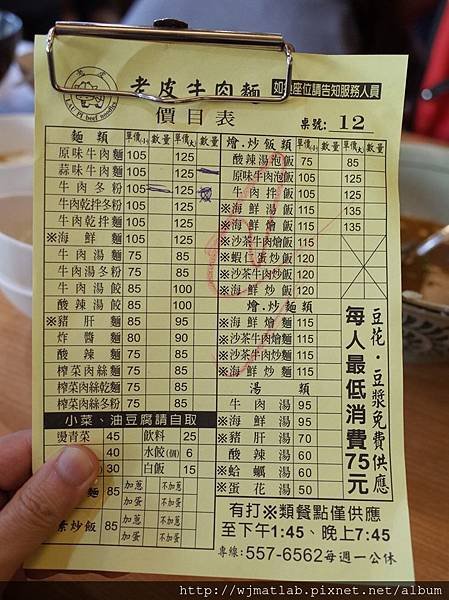 老皮牛肉麵
LAU PI beef noodles
如有座位請告知服務人員
價目表
桌號: 12
麵類 單價(小) 數量 單價(大) 數量
原味牛肉麵 105 125
蒜味牛肉麵 105 125
牛肉冬粉 105 125
牛肉乾拌冬粉 105 125
牛肉乾拌麵 105 125
※海鮮麵 105 125
牛肉湯麵 75 85
牛肉湯冬粉 75 85
牛肉湯餃 85 100
酸辣湯餃 85 100
※豬肝麵 85 95
炸醬麵 80 90
酸辣麵 75 85
榨菜肉絲麵 75 85
榨菜肉絲乾麵 75 85
榨菜肉絲冬粉 75 85
小菜、油豆腐請自取
燙青菜 45 飲料 25
40 水餃(個) 6
30 白飯 15
麵 85 加蔥 不加蔥
加蛋 不加蛋
素炒飯 85 加蔥 不加蔥
加蛋 不加蛋
燴.炒飯類 單價(小) 數量 單價(大) 數量
酸辣湯泡飯 75 85
原味牛肉泡飯 105 125
牛肉拌飯 105 125
※海鮮湯飯 115 135
※海鮮燴飯 115 135
※沙茶牛肉燴飯 115
※蝦仁蛋炒飯 120
※沙茶牛肉炒飯 120
※海鮮炒飯 120
燴.炒麵類
※海鮮燴麵 115
※沙茶牛肉燴麵 115
※沙茶牛肉炒麵 115
※海鮮炒麵 115
湯類
牛肉湯 95
※海鮮湯 95
※豬肝湯 70
酸辣湯 60
※蛤蠣湯 60
※蛋花湯 50
豆花·豆漿免費供應
每人最低消費75元
有打※類餐點僅供應
至下午1:45、晚上7:45
專線: 557-6562 每週一公休
http://wjmatlab.pixnet.net/album